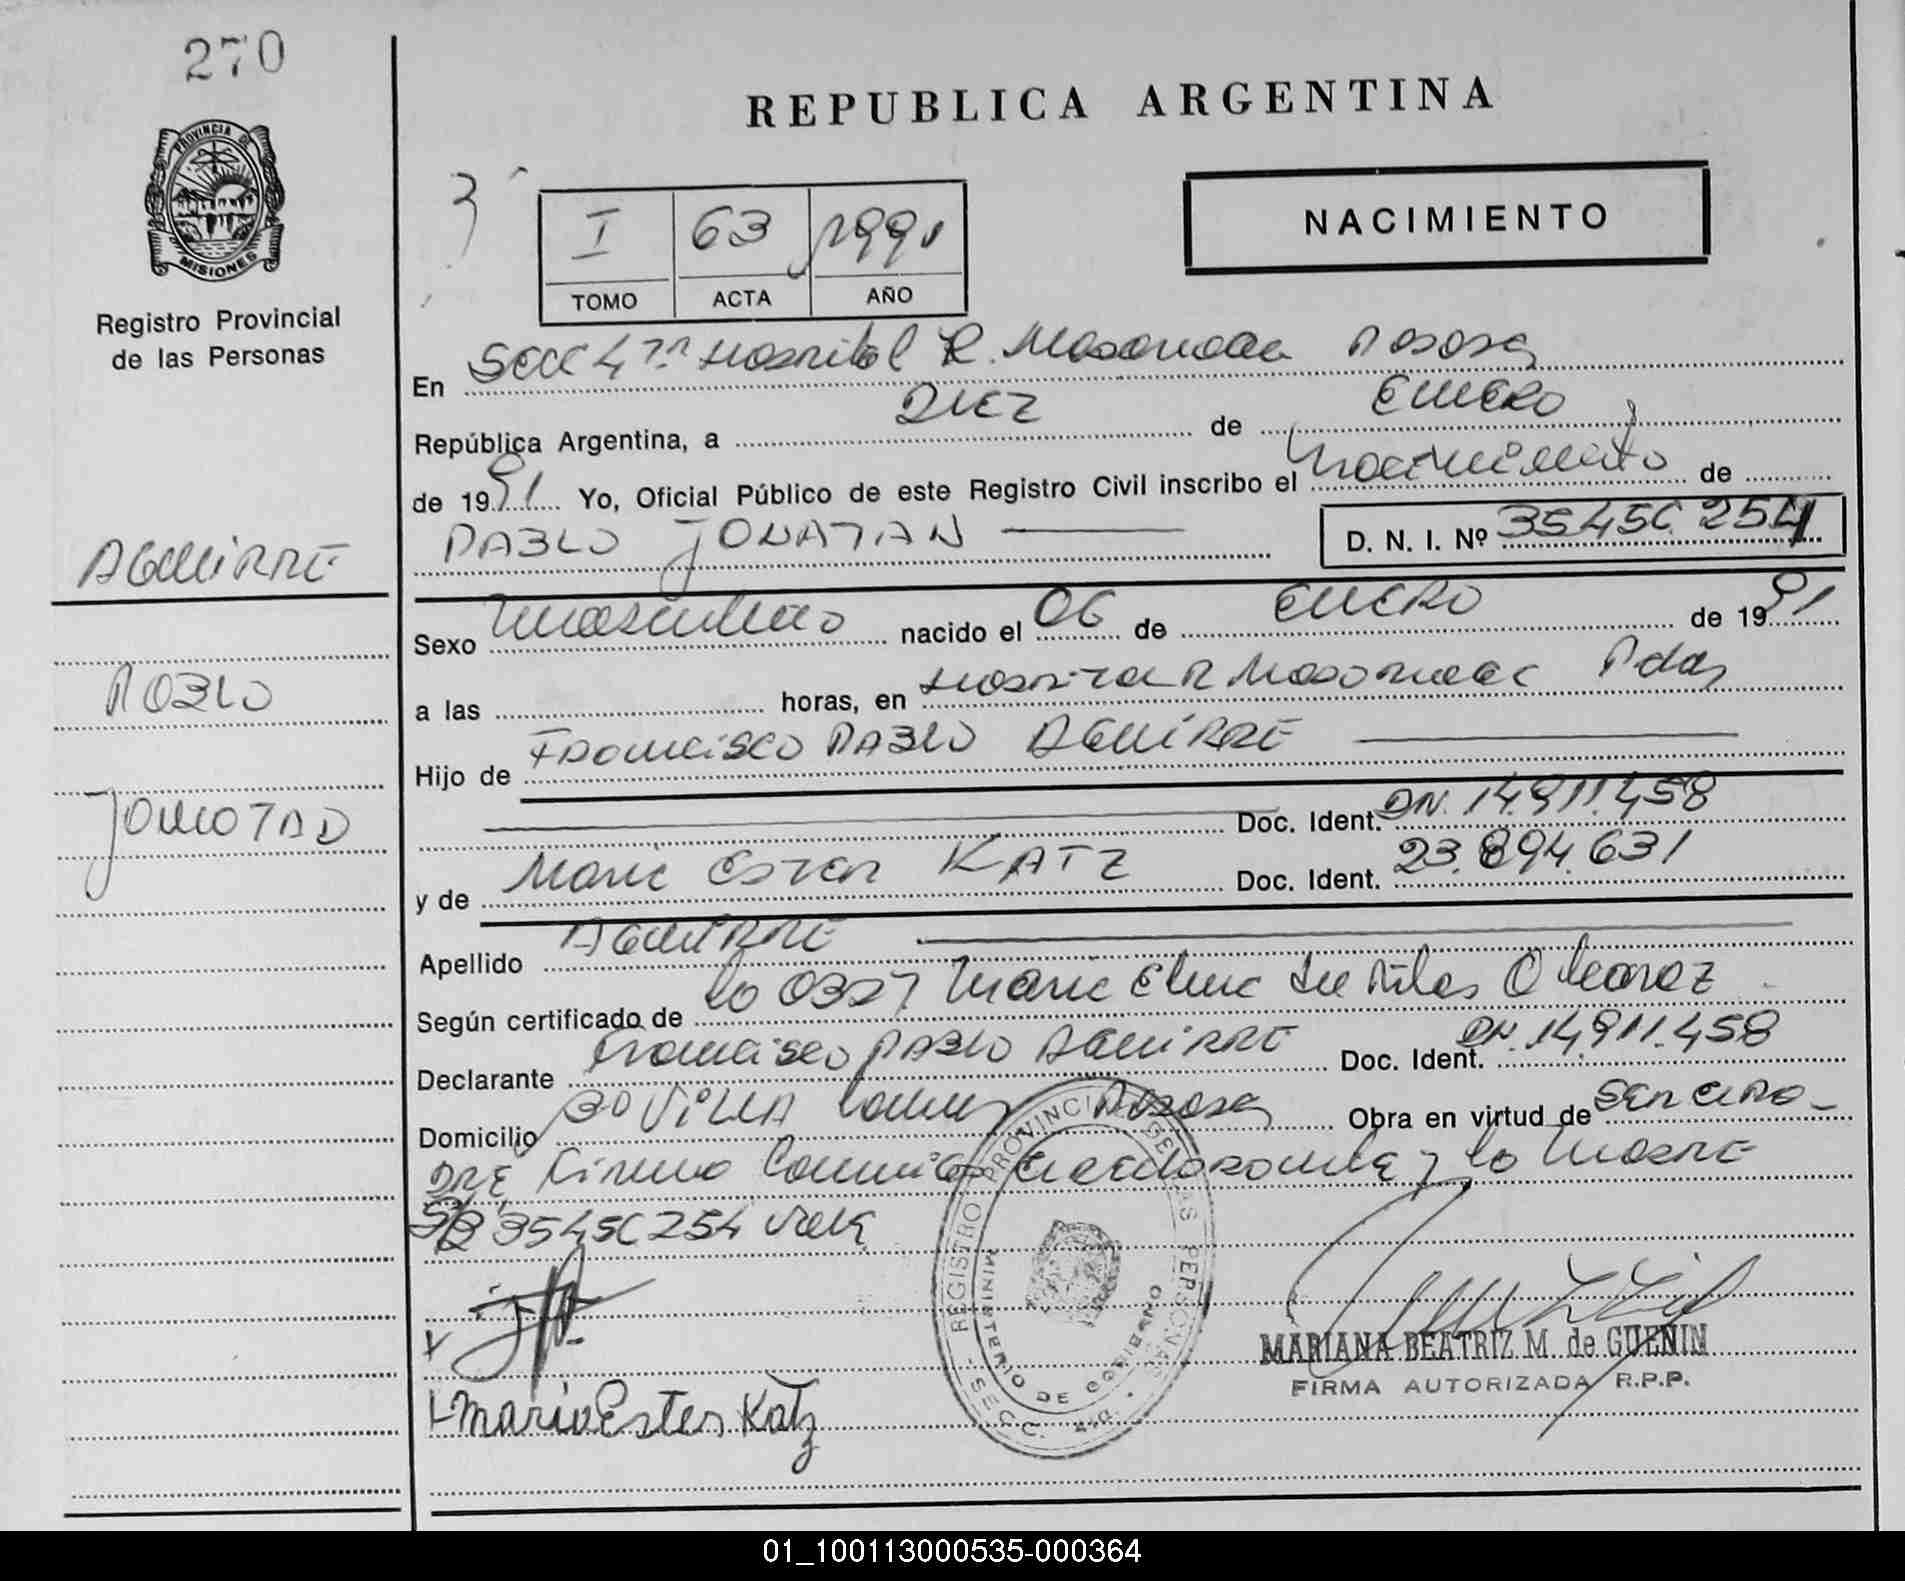 270
REPUBLICA ARGENTINA
PROVINCIA DE
MISIONES
Registro Provincial
de las Personas
NACIMIENTO
I 63 1991
TOMO ACTA AÑO
En Secc 4ta Hospital R. Madariaga Posadas
República Argentina, a DIEZ de ENERO
de 1991 Yo, Oficial Público de este Registro Civil inscribo el nacimiento de
PABLO JONATAN
D. N. I. Nº 35456254
AGUIRRE
PABLO
JONATAN
Sexo masculino nacido el 06 de ENERO de 1991
a las horas, en Hospital R Madariaga Pdas
Hijo de Francisco PABLO AGUIRRE
Doc. Ident. DN. 14.911.458
y de Maria Ester KATZ Doc. Ident. 23.894.631
Apellido AGUIRRE
Según certificado de la Maria
Declarante Francisco PABLO AGUIRRE Doc. Ident. DN. 14.911.458
Domicilio VILLA Posadas Obra en virtud de ser el PA-
DRE, Firma y la MADRE
35456254 vale
REGISTRO PROVINCIAL DE LAS PERSONAS
MINISTERIO DE GOBIERNO
SECC. 4ta.
Maria Ester Katz
MARIANA BEATRIZ M. de GUENIN
FIRMA AUTORIZADA R.P.P.
01_100113000535-000364